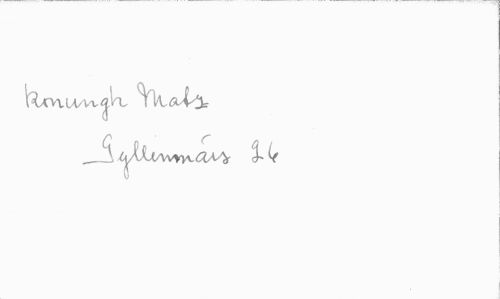 konungh Matz
Gyllinmårs 26